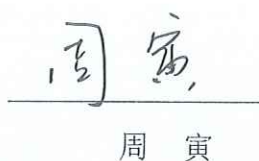 周寅
周 寅